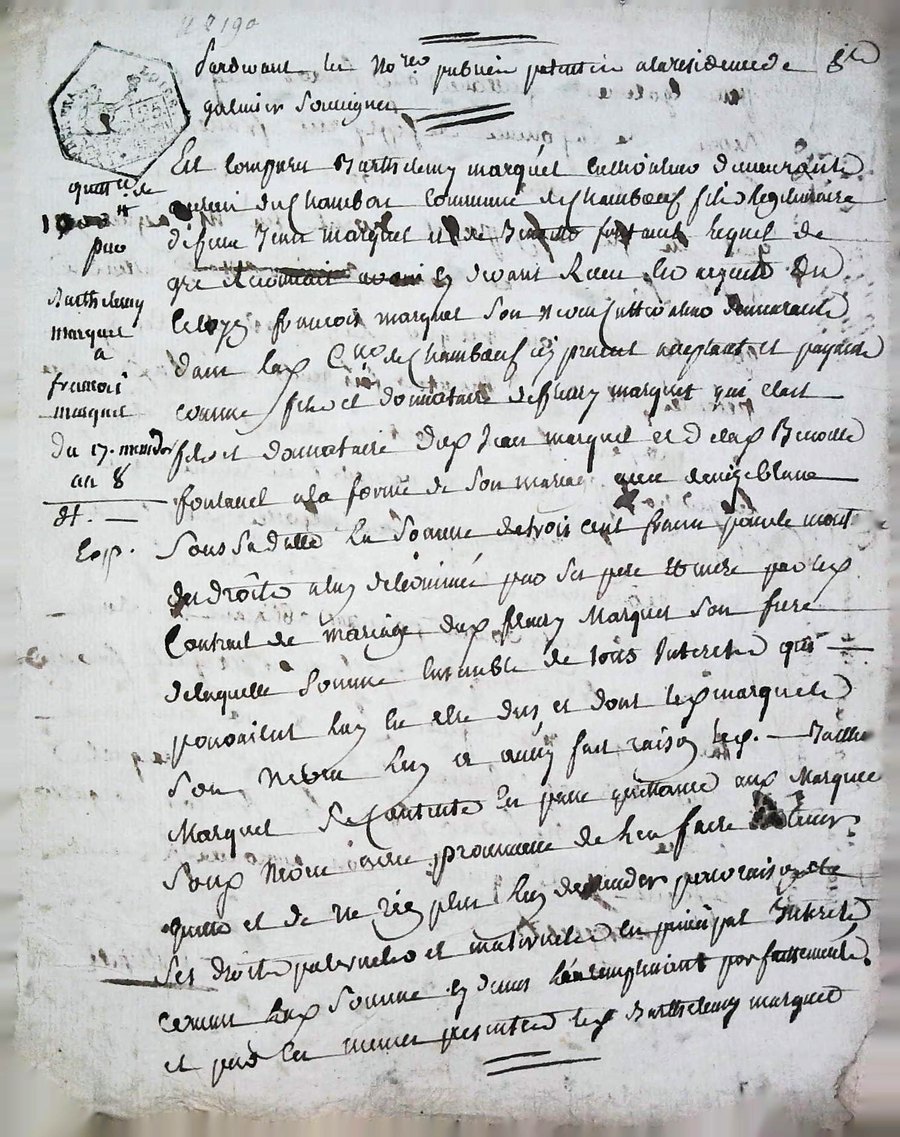 Pardevant les No.res publics patentés a la residence de St
galmier Soussignés
Est comparu Barthelemy marquet Cultivateur demeurant
au lieu du Chambon Commune de Chambœuf fils legitimaire
defunt Jean marquet et de Benoitte fontanel lequel de
gré reconnait avoir cy devant Recu les argents du
Citoyen francois marquet son neveu Cultivateur demeurant
dans lad. C.ne de Chambœuf icy present acceptant et payant
comme fils et donnataire de fleury marquet qui etait
fils et donnataire dud. Jean marquet et de lad. Benoitte
fontanel a la forme de son mariage avec denize blanc
Sous sa datte La Somme de trois cent francs pour le mont
des droits a luy deleminés par Ses pere et mere par led.
Contrat de mariage dud. fleury Marquet son frere
de laquelle Somme Ensemble de tous Interets qui
pouvaient luy En etre dus et dont led. marquet
Son Neveu luy a aussy fait raison led. Barthe
Marquet Se Contente En passe quittance aud. Marquet
Sond. Neveu avec promesse de l'en faire tenir
quitte et de ne rien plus luy demander pour raison de
Ses droits paternels et maternels En principal Interets
comme lad. Somme Les remplissant parfaitement.
et par les memes presentes led. Barthelemy marquet
quittce de
par
Barthelemy
marquet
a
francois
marquet
du 17. messidor
an 8
Exp.